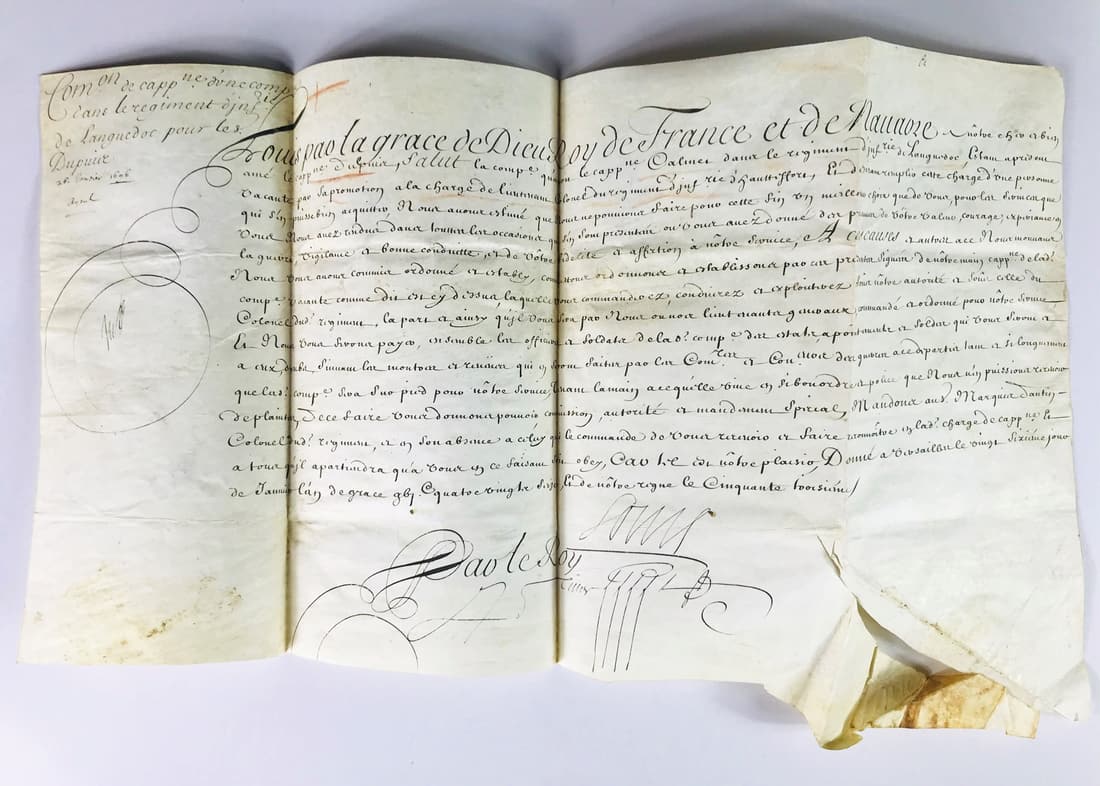 Com.on de capp.ne d'une comp.
dans le regiment d'inf.rie
de Languedoc pour le s.
Dupuix
26.
Louis par la grace de Dieu Roy de France et de Navarre A nôtre cher et bien
amé le capp.ne Dupuix, Salut la comp.e le capp.ne dans le regiment d'inf.rie de Languedoc, Estant a present
Vacante par sa promotion a la charge de Lieutenant Colonel du regiment d'inf.rie d'hauttefort, Et desirant remplir cette charge d'une personne
qui s'en puisse bien acquitter Nous avons estimé que Nous ne pouvions faire pour cette fin un meilleur choix que de Vous, pour les services que
Vous Nous avez rendus dans toutes les occasions qui s'en sont presentées ou Vous avez donné des preuves de Votre valeur, courage, experience en
la guerre, vigilance et bonne conduitte, et de Votre fidelité et affection à notre Service, A ces causes et autres a ce Nous mouvans
Nous Vous avons commis ordonné et estably, commettons ordonnons et establissons par ces presentes signées de notre main capp.ne de lad.
comp.e vacante comme dit est cy dessus laquelle Vous commanderez, conduirez et exploiterez sous nôtre autorité et sous celle du
Colonel dud. regiment, la part et ainsy qu'il Vous sera par Nous ou nos Lieutenants generaux commandé et ordonné pour nôtre Service
Et Nous Vous ferons payer, ensemble les officiers et soldats de lad. comp.e des estats, apointements et soldes qui Vous seront et
a eux, deubs suivant les montres et reveües qui en seront faites par les Com.res et Con.rs des guerres a ce departis tant et si longuement
que lad. comp.e sera sur pied pour nôtre Service, Tenant la main a ce qu'elle vive en si bon ordre et police que Nous n'en puissions recevoir
de plainte, De ce faire Vous donnons pouvoir commission, autorité et mandement Special, Mandons au S. Marquis Dantin
Colonel dud. regiment, et en son absence a celuy qui le commande de Vous recevoir et faire reconnoître en lad. charge de capp.ne Et
a tous qu'il apartiendra qu'a Vous en ce faisant soit obey, Car tel est nôtre plaisir, Donné a Versailles le vingt sixième jour
de Janvier l'an de grace gbj. C quatre vingts seize, Et de nôtre regne le Cinquante troisième
Louis
Par le Roy